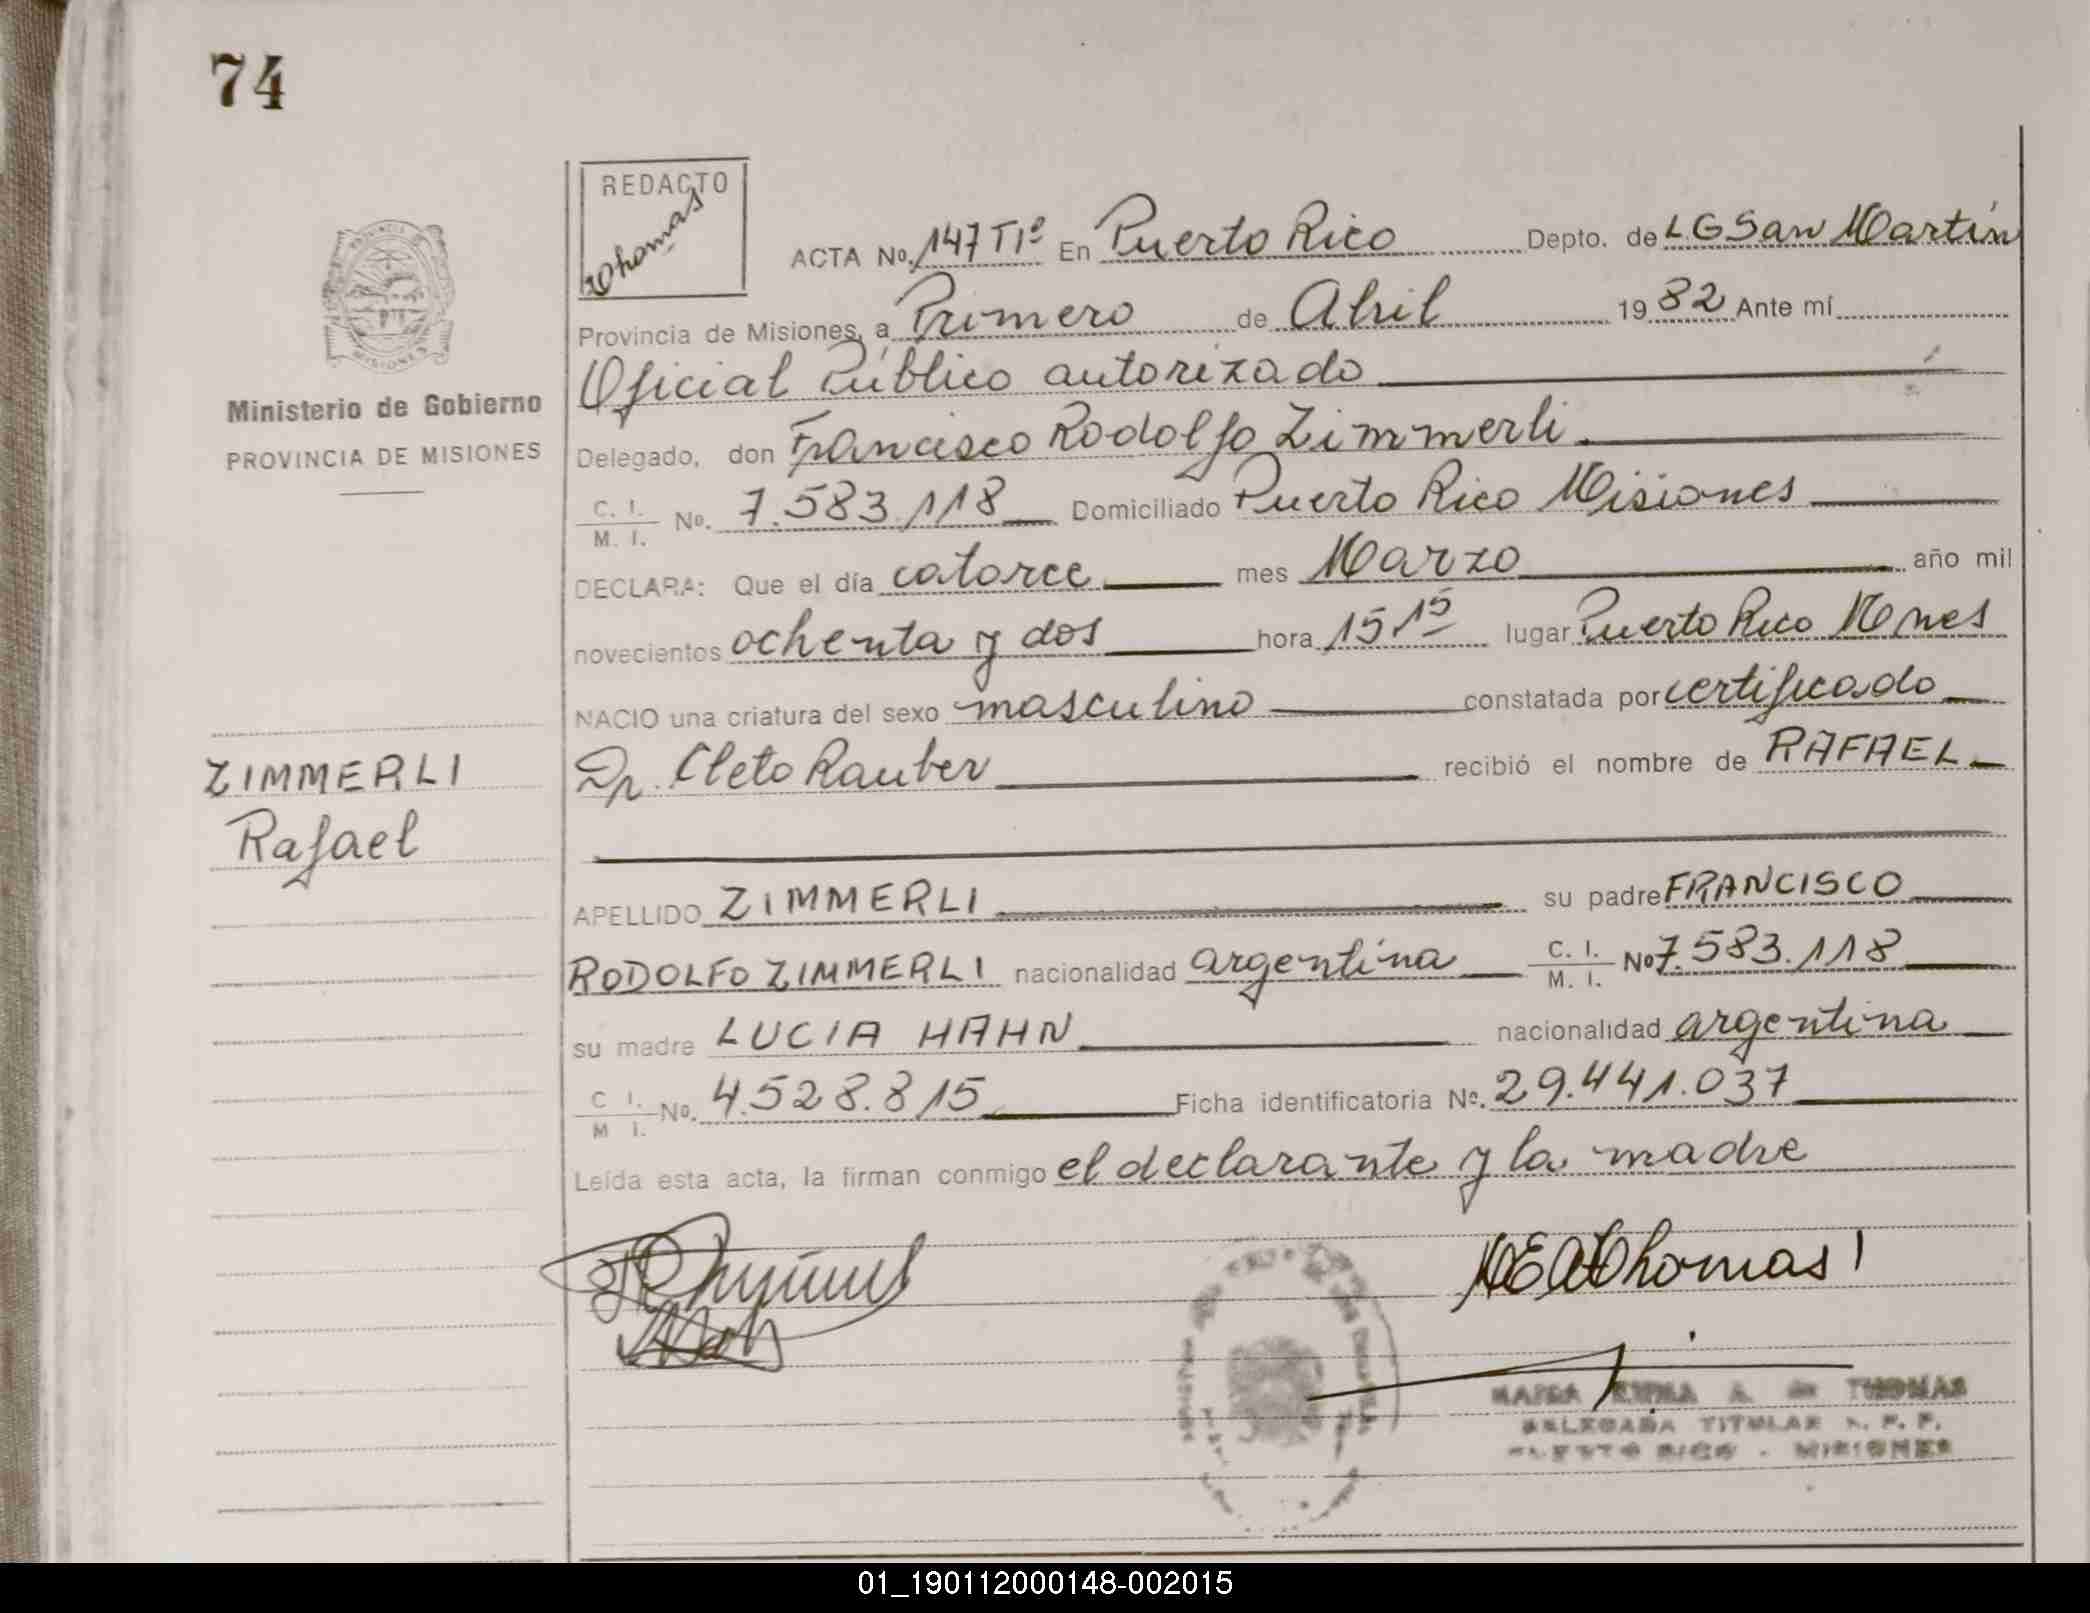 74
REDACTO
Thomas
ACTA No. 147 Tº1º En Puerto Rico Depto. de L.G San Martín
Provincia de Misiones, a Primero de Abril 1982 Ante mí
Oficial Público autorizado
Delegado, don Francisco Rodolfo Zimmerli
C. I. M. I. No. 7.583.118 Domiciliado Puerto Rico Misiones
DECLARA: Que el día catorce mes Marzo año mil
novecientos ochenta y dos hora 15 15 lugar Puerto Rico Mnes
NACIO una criatura del sexo masculino constatada por certificado
Dr. Cleto Rauber recibió el nombre de RAFAEL
APELLIDO ZIMMERLI su padre FRANCISCO
RODOLFO ZIMMERLI nacionalidad argentina C. I. M. I. No 7.583.118
su madre LUCIA HAHN nacionalidad argentina
C I. M I. No. 4.528.815 Ficha identificatoria Nº. 29.441.037
Leída esta acta, la firman conmigo el declarante y la madre
Ministerio de Gobierno
PROVINCIA DE MISIONES
ZIMMERLI
Rafael
Thomas
THOMAS
DELEGADA TITULAR R. P. P.
PUERTO RICO - MISIONES
01_190112000148-002015